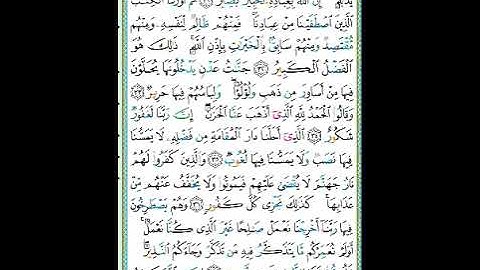 يَدَيْهِ ۗ إِنَّ ٱللَّهَ بِعِبَادِهِۦ لَخَبِيرٌۢ بَصِيرٌ ﴿٣١﴾ ثُمَّ أَوْرَثْنَا ٱلْكِتَٰبَ
ٱلَّذِينَ ٱصْطَفَيْنَا مِنْ عِبَادِنَا ۖ فَمِنْهُمْ ظَالِمٌ لِّنَفْسِهِۦ وَمِنْهُم
مُّقْتَصِدٌ وَمِنْهُمْ سَابِقٌۢ بِٱلْخَيْرَٰتِ بِإِذْنِ ٱللَّهِ ۚ ذَٰلِكَ هُوَ
ٱلْفَضْلُ ٱلْكَبِيرُ ﴿٣٢﴾ جَنَّٰتُ عَدْنٍ يَدْخُلُونَهَا يُحَلَّوْنَ
فِيهَا مِنْ أَسَاوِرَ مِن ذَهَبٍ وَلُؤْلُؤًا ۖ وَلِبَاسُهُمْ فِيهَا حَرِيرٌ ﴿٣٣﴾
وَقَالُوا۟ ٱلْحَمْدُ لِلَّهِ ٱلَّذِىٓ أَذْهَبَ عَنَّا ٱلْحَزَنَ ۖ إِنَّ رَبَّنَا لَغَفُورٌ
شَكُورٌ ﴿٣٤﴾ ٱلَّذِىٓ أَحَلَّنَا دَارَ ٱلْمُقَامَةِ مِن فَضْلِهِۦ لَا يَمَسُّنَا
فِيهَا نَصَبٌ وَلَا يَمَسُّنَا فِيهَا لُغُوبٌ ﴿٣٥﴾ وَٱلَّذِينَ كَفَرُوا۟ لَهُمْ
نَارُ جَهَنَّمَ لَا يُقْضَىٰ عَلَيْهِمْ فَيَمُوتُوا۟ وَلَا يُخَفَّفُ عَنْهُم مِّنْ
عَذَابِهَا ۚ كَذَٰلِكَ نَجْزِى كُلَّ كَفُورٍ ﴿٣٦﴾ وَهُمْ يَصْطَرِخُونَ
فِيهَا رَبَّنَآ أَخْرِجْنَا نَعْمَلْ صَٰلِحًا غَيْرَ ٱلَّذِى كُنَّا نَعْمَلُ ۚ
أَوَلَمْ نُعَمِّرْكُم مَّا يَتَذَكَّرُ فِيهِ مَن تَذَكَّرَ وَجَآءَكُمُ ٱلنَّذِيرُ ۖ